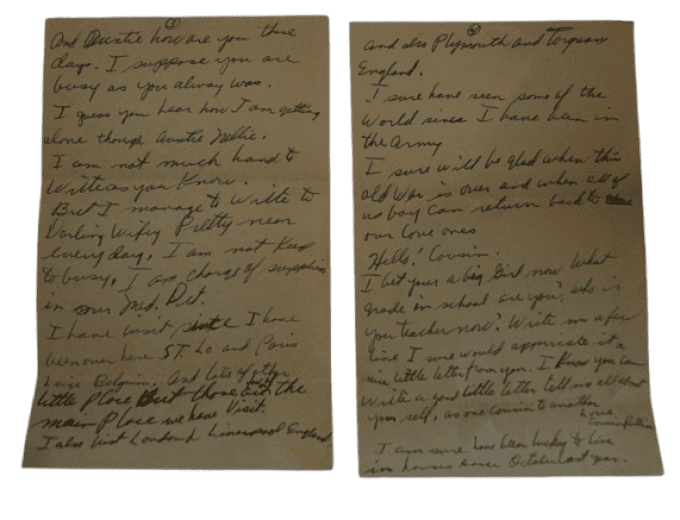 ②
And Auntie how are you these
days. I suppose you are
busy as you alway was.
I guess you hear how I am getting
alone though Auntie Nellie.
I am not much hand to
Writte as you Know.
But I manage to Writte to
Darling Wifey Pretty near
every day, I am not Keep
to busy, I am charge of supplies
in our Med. Det.
I have visit since I have
been over here ST. Lo and Paris
Belguim, and lots of other
little Place But those are the
main Place we have Visit.
I also Visit London Liverpool England
and also Plymouth and Torquay
England.
I sure have seen some of the
World since I have been in
the Army
I sure will be glad when this
old War is over and when all of
us boy can return back to
our Love ones
Hello! Cousin.
I bet your a big Girl now What
grade in school are you? who is
you teacher now? Write me a few
line I sure would appricate it a
nice little letter from you. I Know you can
Write a good little letter tell me all about
your self, as one Cousin to another
Love
Cousin
I am sure have been lucky to live
in houses since October last year.